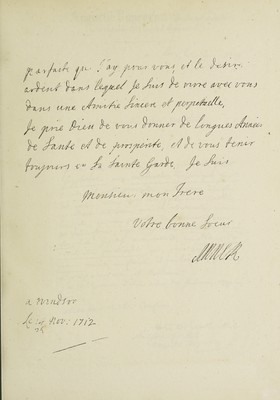 parfaite que J'ay pour vous, et le desir
ardent dans lequel Je suis de vivre avec vous
dans une Amitie sincere et perpetuelle,
Je prie Dieu de vous donner de longues Années
de Santé et de prosperité, et de vous tenir
toujours en Sa Sainte Garde. Je suis
Monsieur mon Frere
Votre bonne Soeur
ANNE R
a Windsor
Nov: 1712